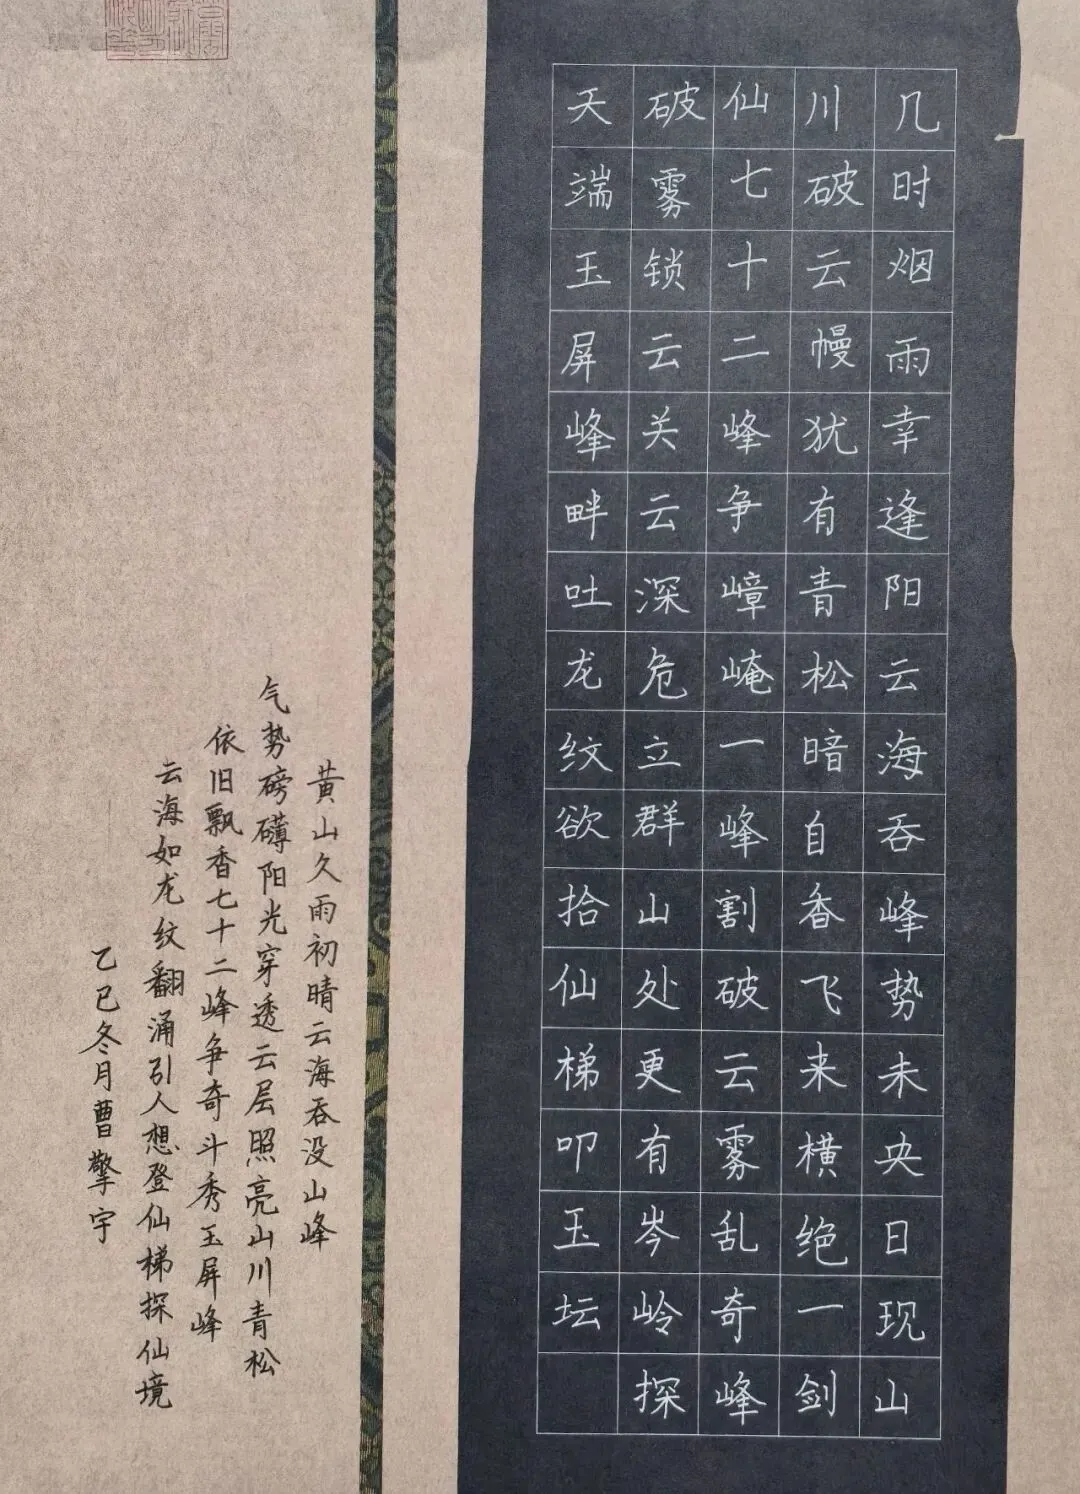 几时烟雨幸逢阳云海吞峰势未央日现山
川破云幔犹有青松暗自香飞来横绝一剑
仙七十二峰争嶂崦一峰割破云雾乱奇峰
破雾锁云关云深危立群山处更有岑岭探
天端玉屏峰畔吐龙纹欲拾仙梯叩玉坛
黄山久雨初晴云海吞没山峰
气势磅礴阳光穿透云层照亮山川青松
依旧飘香七十二峰争奇斗秀玉屏峰
云海如龙纹翻涌引人想登仙梯探仙境
乙巳冬月曹擎宇